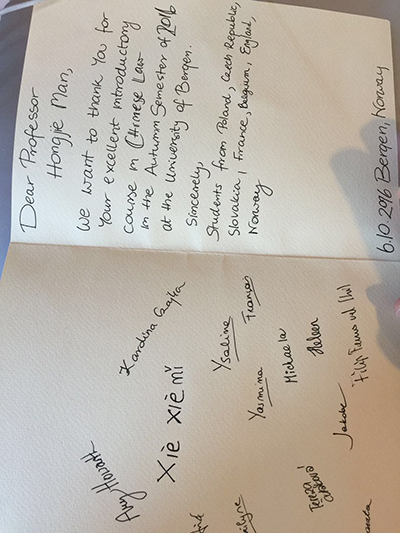 Dear Professor
Hongjie Man,
We want to thank You for
Your excellent introductory
course in Chinese Law
in the Autumn Semester of 2016
at the University of Bergen.
Sincerely,
Students from Poland, Czech Republic,
Slovakia, France, Belgium, England,
Norway
6.10.2016 Bergen, Norway
Karolina
Xiè xiè nǐ
Ysaline
Français
Yasmina
Michaela
Helen
Filip
Jakob
Tereza
Amy